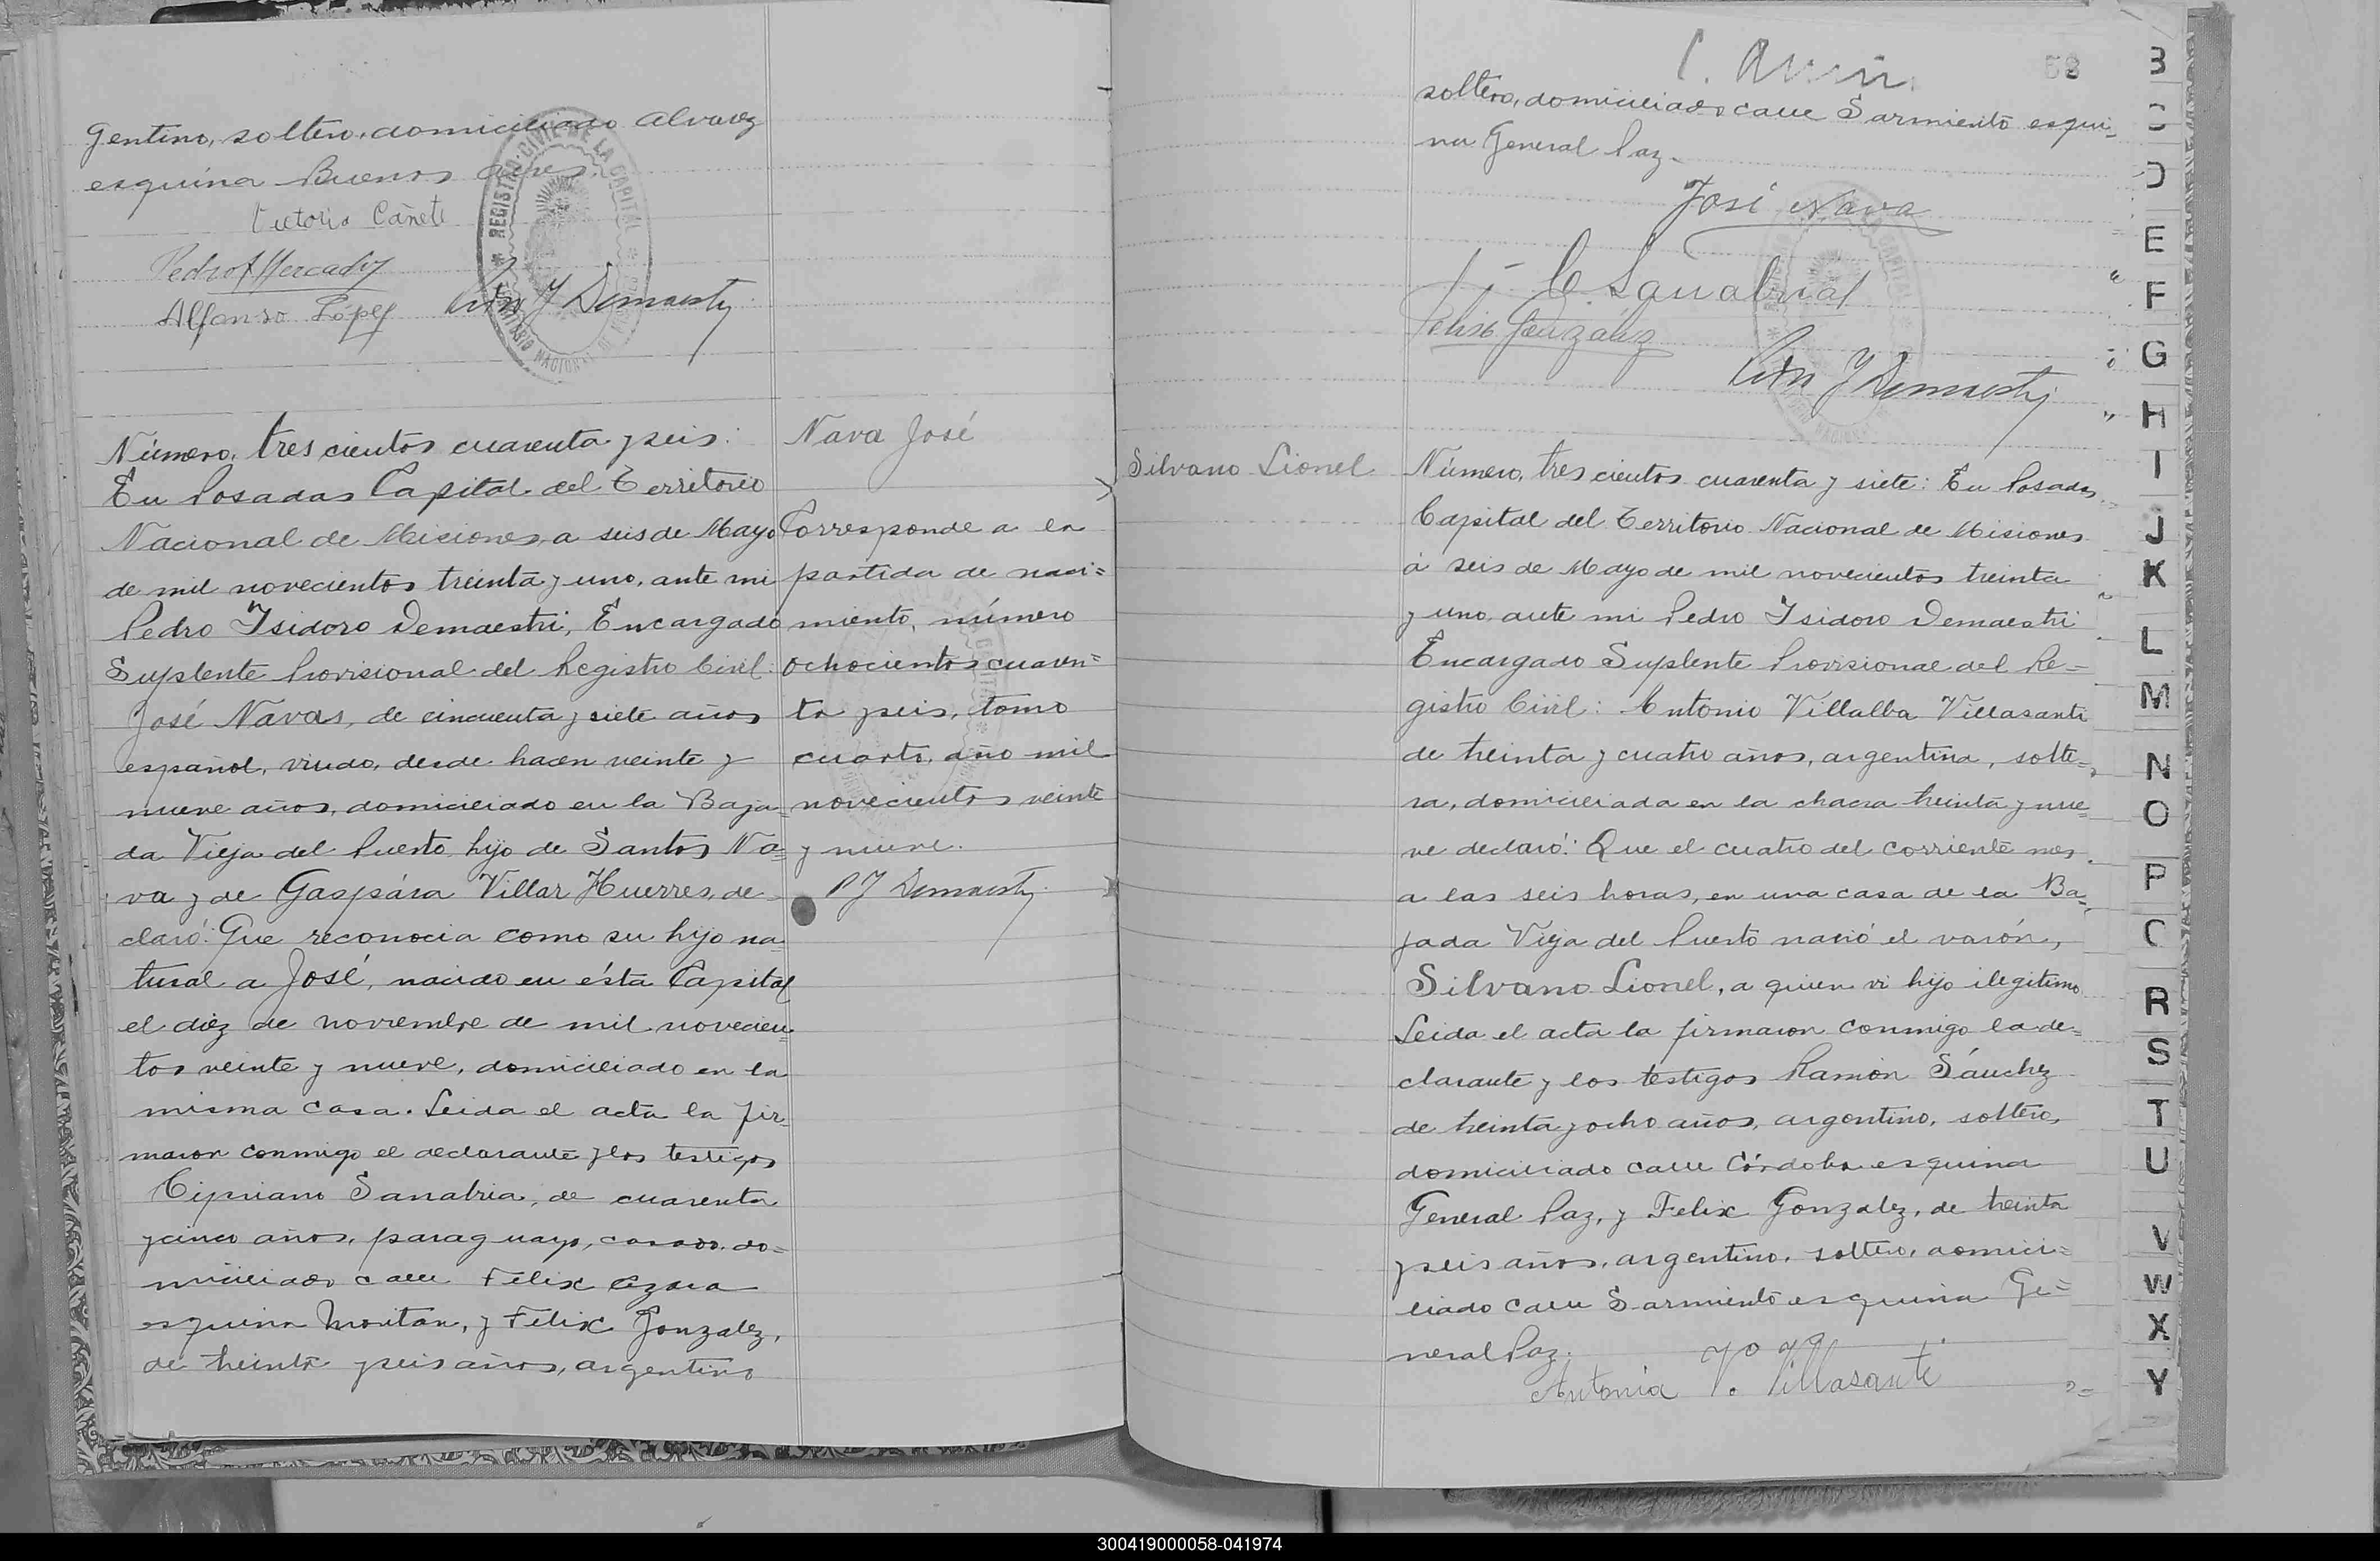 gentino, soltero, domiciliado Alvarez
esquina Buenos Aires.
Victoria Cañete
Pedro Mercado
Alfonso Lopez
REGISTRO CIVIL DE LA CAPITAL
TERRITORIO NACIONAL DE
Número, tres cientos cuarenta y seis:
En Posadas Capital del Territorio
Nacional de Misiones, a seis de Mayo
de mil novecientos treinta y uno, ante mi
Pedro Isidoro Demaestri, Encargado
Suplente Provisional del Registro Civil:
José Navas, de cincuenta y siete años
español, viudo, desde hacen veinte y
nueve años, domiciliado en la Baja=
da Vieja del Puerto, hijo de Santos Na=
va y de Gaspára Villar Huerres, de=
claró: Que reconocia como su hijo na=
tural a José, nacido en ésta Capital
el diez de noviembre de mil novecien=
tos veinte y nueve, domiciliado en la
misma casa. Leida el acta la fir=
maron conmigo el declarante y los testigos
Cipriano Sanabria, de cuarenta
y cinco años, paraguayo, casado, do=
miciliado calle Felix Azara
esquina Montan, y Felix Gonzalez,
de treinta y seis años, argentino
Nava José
Corresponde a la
partida de naci=
miento, número
ochocientos cuaren=
ta y seis, tomo
cuarto, año mil
novecientos veinte
y nueve.
P I Demaestri
58
soltero, domiciliado calle Sarmiento esqui=
na General Paz.
José Nava
C. Sanabria
Felix González
Silvano Lionel
Número, tres cientos cuarenta y siete: En Posadas
Capital del Territorio Nacional de Misiones
á seis de Mayo de mil novecientos treinta
y uno, ante mi Pedro Isidoro Demaestri
Encargado Suplente Provisional del Re=
gistro Civil: Antonia Villalba Villasanti
de treinta y cuatro años, argentina, solte=
ra, domiciliada en la chacra treinta y nue=
ve declaró: Que el cuatro del corriente mes
a las seis horas, en una casa de la Ba=
jada Vieja del Puerto nació el varón,
Silvano Lionel, a quien vi hijo ilegitimo
Leida el acta la firmaron conmigo la de=
clarante y los testigos Ramón Sánchez
de treinta y ocho años, argentino, soltero,
domiciliado calle Córdoba esquina
General Paz, y Felix Gonzalez, de treinta
y seis años, argentino, soltero, domici=
liado calle Sarmiento esquina Ge=
neral Paz.
Antonia V. Villasanti
B
C
D
E
F
G
H
I
J
K
L
M
N
O
P
R
S
T
U
V
W
X
Y
300419000058-041974